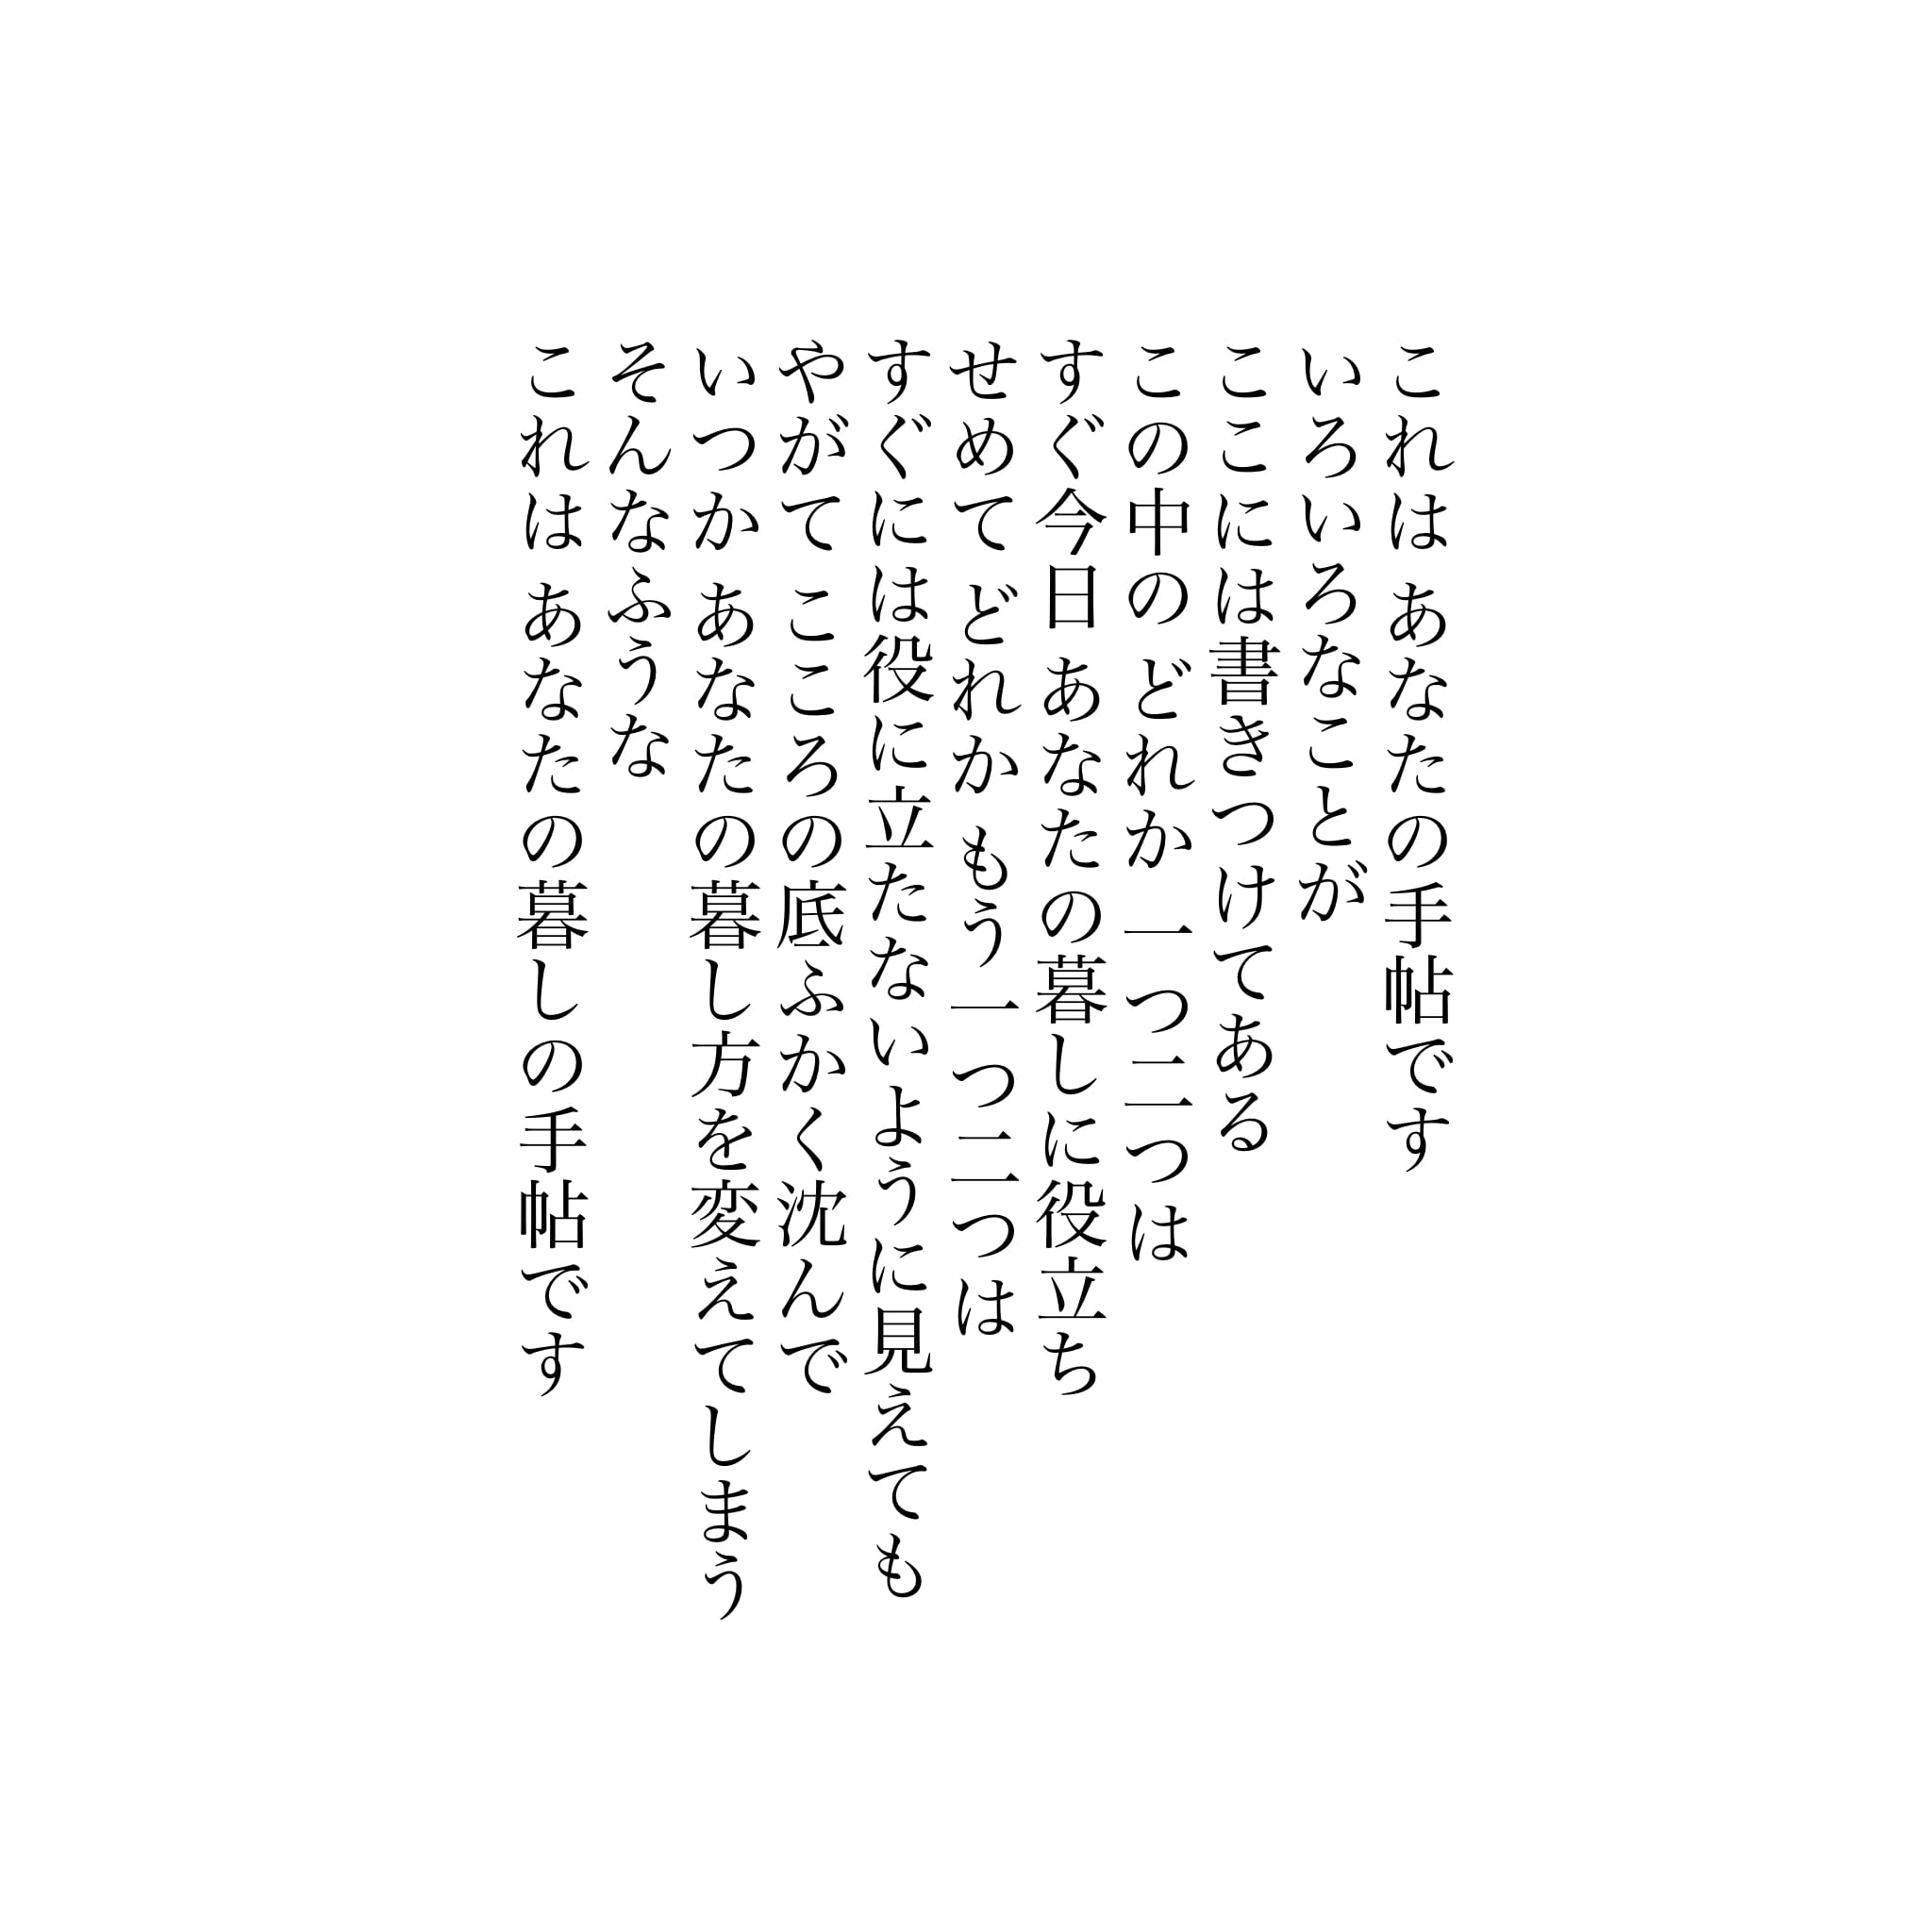 これは あなたの手帖です
いろいろなことが
ここには書きつけてある
この中の どれか 一つ二つは
すぐ今日 あなたの暮しに役立ち
せめて どれか もう一つ二つは
すぐには役に立たないように見えても
やがて こころの底ふかく沈んで
いつか あなたの暮し方を変えてしまう
そんなふうな
これは あなたの暮しの手帖です